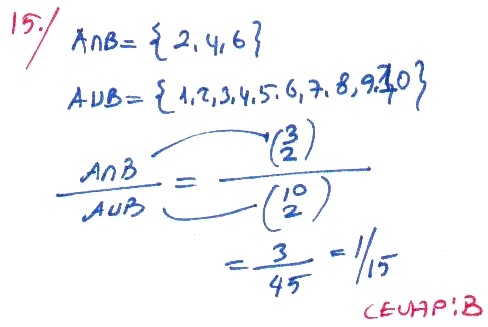 15./ A∩B = { 2, 4, 6 }
A∪B = { 1, 2, 3, 4, 5, 6, 7, 8, 9, 10 }
A∩B / A∪B = (3 2) / (10 2)
= 3/45 = 1/15
CEVAP: B